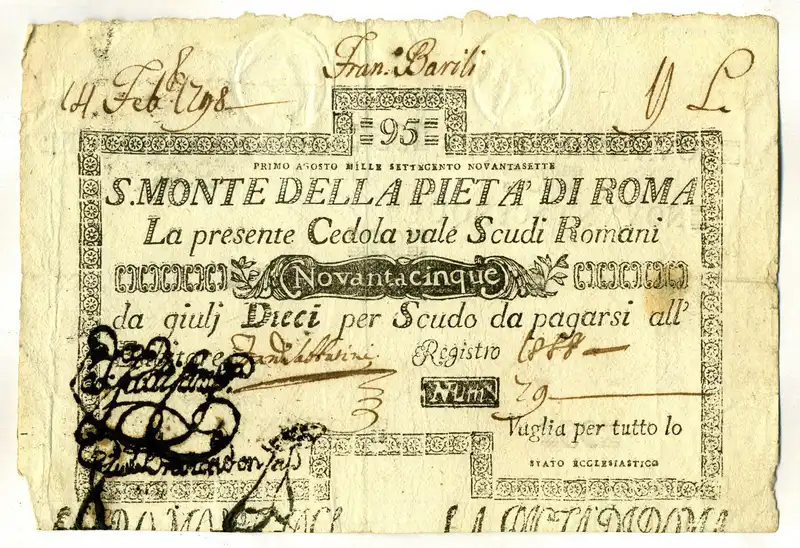 Fran.º Barili
14. Feb.º 1798
95
PRIMO AGOSTO MILLE SETTECENTO NOVANTASETTE
S. MONTE DELLA PIETA' DI ROMA
La presente Cedola vale Scudi Romani
Novantacinque
da giulj Dieci per Scudo da pagarsi all'
Registro 1888
Num. 29
Vaglia per tutto lo
STATO ECCLESIASTICO